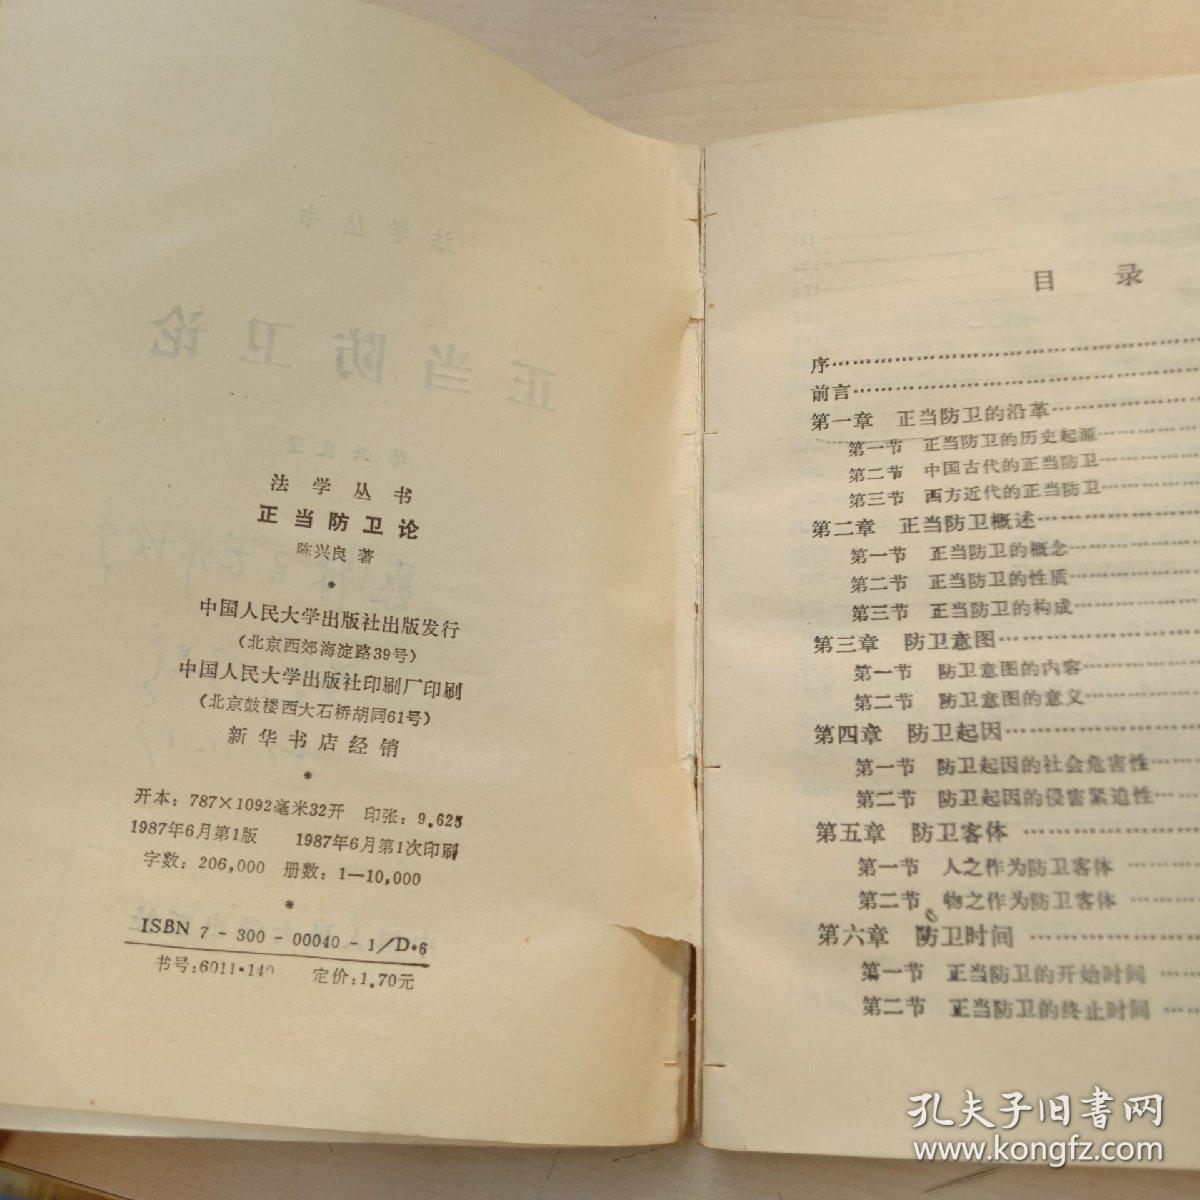 法学丛书
正当防卫论
陈兴良 著
*
中国人民大学出版社出版发行
(北京西郊海淀路39号)
中国人民大学出版社印刷厂印刷
(北京鼓楼西大石桥胡同61号)
新华书店经销
*
开本：787×1092毫米32开 印张：9.625
1987年6月第1版 1987年6月第1次印刷
字数：206,000 册数：1—10,000
*
ISBN 7-300-00040-1/D·6
书号：6011·140 定价：1.70元
目 录
序……………………………………
前言……………………………………
第一章 正当防卫的沿革………………
第一节 正当防卫的历史起源……………
第二节 中国古代的正当防卫……………
第三节 西方近代的正当防卫……………
第二章 正当防卫概述………………
第一节 正当防卫的概念……………
第二节 正当防卫的性质……………
第三节 正当防卫的构成……………
第三章 防卫意图…………………
第一节 防卫意图的内容……………
第二节 防卫意图的意义……………
第四章 防卫起因…………………
第一节 防卫起因的社会危害性……
第二节 防卫起因的侵害紧迫性……
第五章 防卫客体…………………
第一节 人之作为防卫客体 ………
第二节 物之作为防卫客体 ………
第六章 防卫时间 ………………
第一节 正当防卫的开始时间 ……
第二节 正当防卫的终止时间 ……
孔夫子旧书网
www.kongfz.com